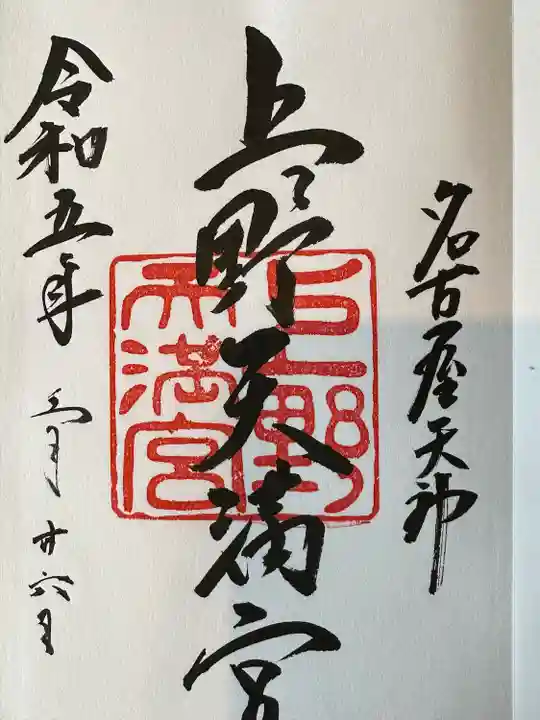 名古屋天神
上野天満宮
上野
天満宮
令和五年 三月 廿六日